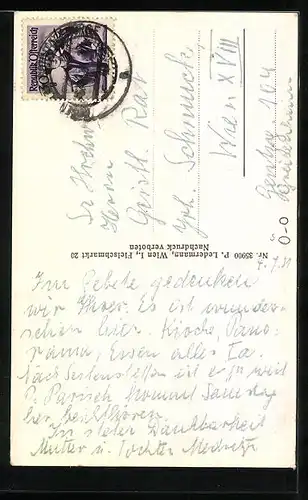 Republik Österreich
Sr. Hochw.
Herrn
Geistl. Rat
Joh. Schmuck
Wien XVIII
Gentzg. 104
Nr. 35900 P. Ledermann, Wien I., Fleischmarkt 20
Nachdruck verboten
Im Gebete gedenken
wir Ihrer. Es ist wunder-
schön hier. Kirche, Pano-
rama, Essen alles Ia.
Nach ist es weit
P. kommt Samstag
her beichthören.
In steter Dankbarkeit
Mutter u. Tochter